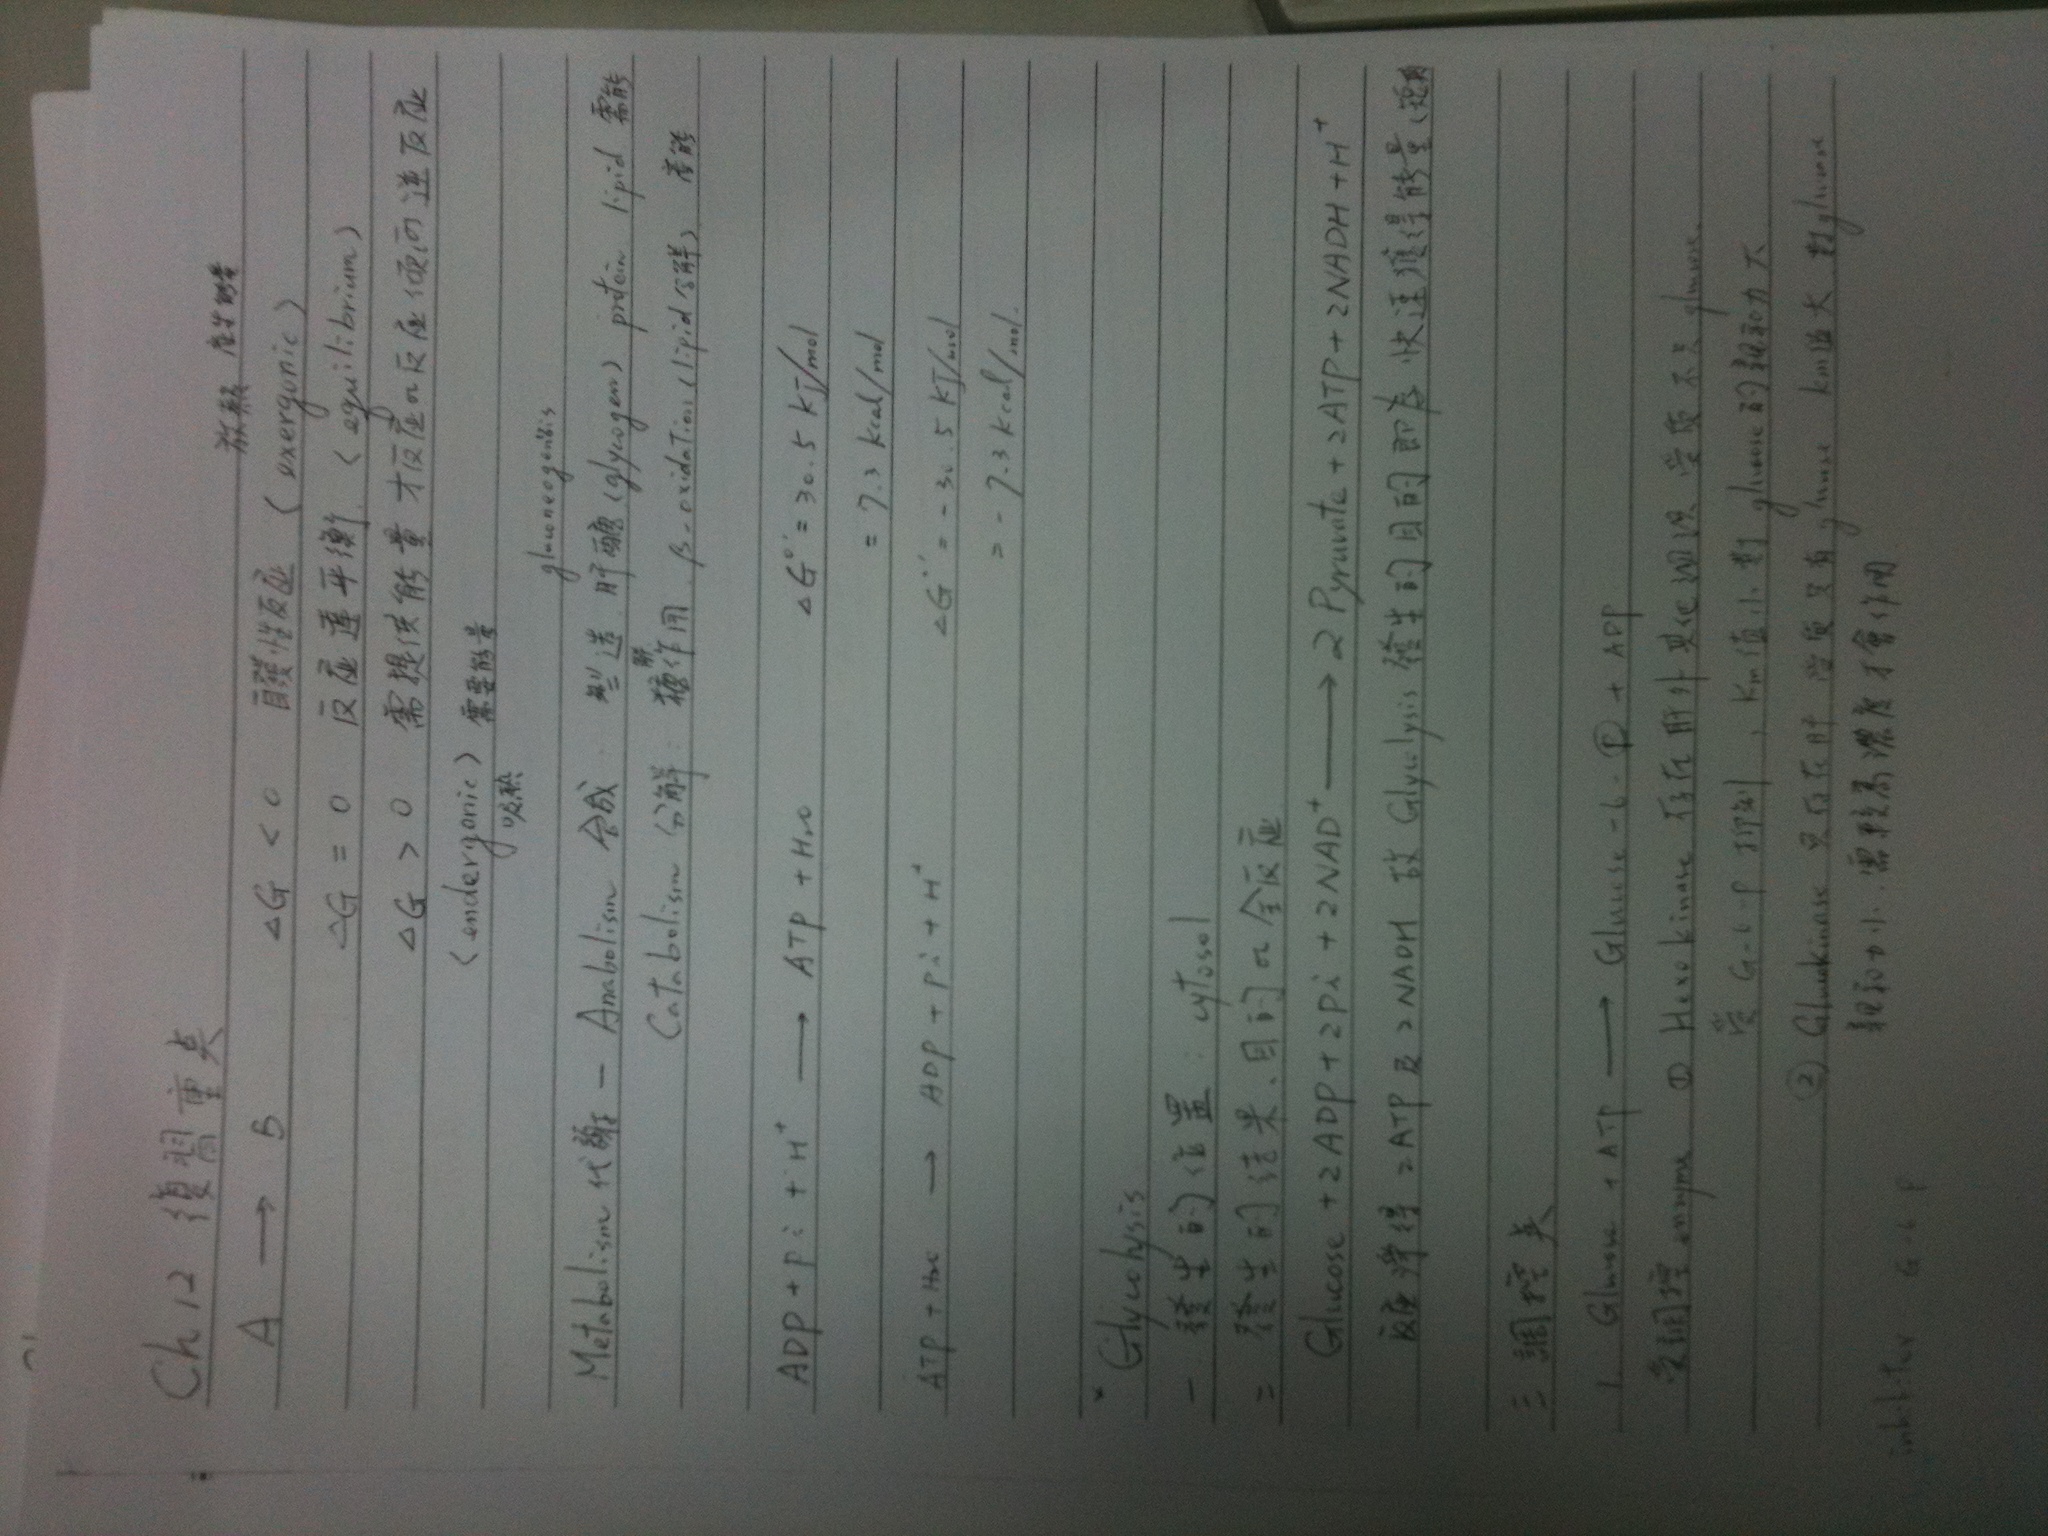 Ch 12 復習重点
放熱 產生能量
A → B △G < 0 自發性反应 (exergonic)
△G = 0 反应達平衡 (equilibrium)
△G > 0 需提供能量才反应or反应傾向逆反应
(endergonic) 需要能量
吸熱
gluconeogenisis
Metabolism 代謝 — Anabolism 合成 : 製造 肝醣(glycogen) protein lipid 需能
解
Catabolism 分解 : 糖作用 β-oxidation(lipid分解) 產能
ADP + Pi + H⁺ → ATP + H₂O △G°' = 30.5 KJ/mol
= 7.3 kcal/mol
ATP + H₂O → ADP + Pi + H⁺ △G°' = -30.5 KJ/mol
= -7.3 kcal/mol.
* Glycolysis
一 發生的位置 : cytosol
二 發生的結果、目的 or 全反应
Glucose + 2ADP + 2Pi + 2NAD⁺ → 2 Pyruvate + 2ATP + 2NADH + H⁺
反应淨得 2ATP 及 2NADH 故 Glycolysis 發生的目的即為 快速獲得能量(短期
三 調控点
1. Glucose + ATP → Glucose-6-Ⓟ + ADP
受調控 enzyme ① Hexokinase 存在肝外其他 受质不只 glucose.
受 G-6-P 抑制 , Km值小 對 glucose的親和力大
② Glucokinase 只存在肝 受质只有 glucose Km值大 對glucose
親和力小. 需較高濃度才會作用
inhibiter G-6-P